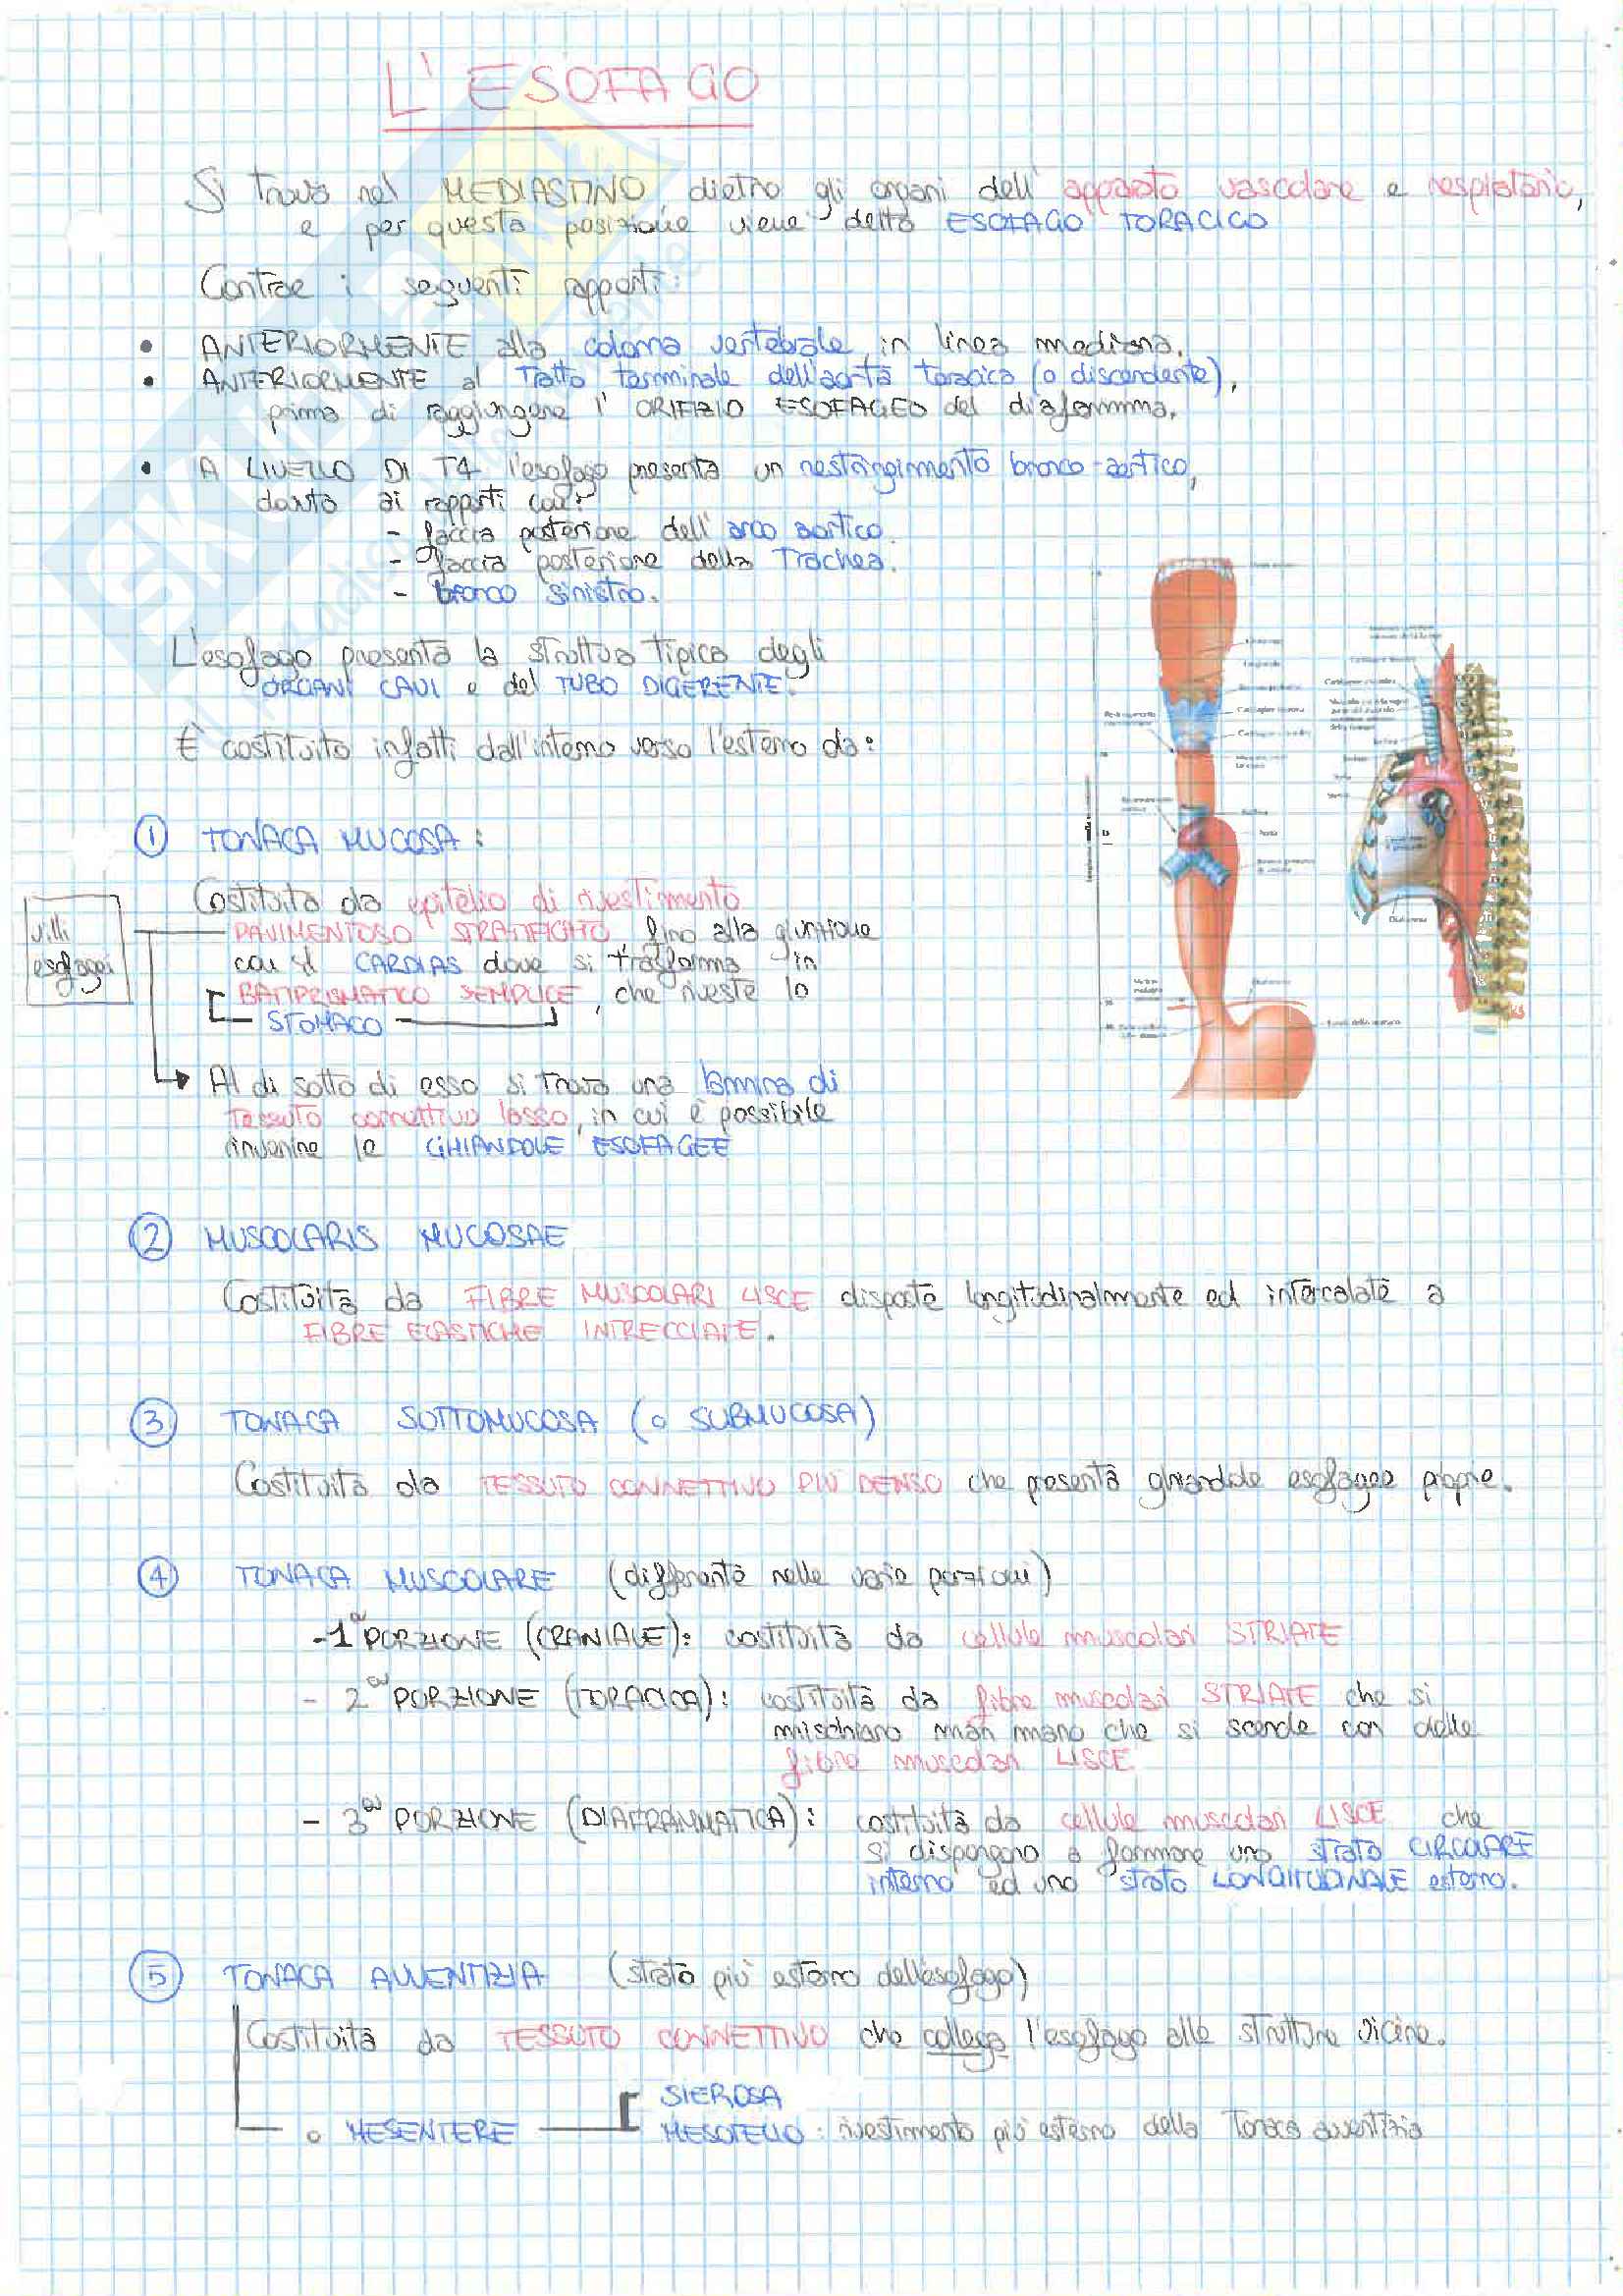 L'ESOFAGO
Si trova nel MEDIASTINO, dietro gli organi dell'apparato vascolare e respiratorio,
e per questa posizione viene detto ESOFAGO TORACICO
Contrae i seguenti rapporti:
• ANTERIORMENTE alla colonna vertebrale, in linea mediana.
• ANTERIORMENTE al tratto terminale dell'aorta toracica (o discendente),
prima di raggiungere l'ORIFIZIO ESOFAGEO del diaframma.
• A LIVELLO DI T4 l'esofago presenta un restringimento bronco-aortico,
dovuto ai rapporti con:
- faccia posteriore dell'arco aortico.
- faccia posteriore della trachea.
- bronco sinistro.
L'esofago presenta la struttura tipica degli
ORGANI CAVI e del TUBO DIGERENTE.
È costituito infatti dall'interno verso l'esterno da:
① TONACA MUCOSA:
Costituita da epitelio di rivestimento
PAVIMENTOSO STRATIFICATO, fino alla giunzione
con il CARDIAS dove si trasforma in
BATIPRISMATICO SEMPLICE, che riveste lo
STOMACO
villi
esofagei
Al di sotto di esso si trova una lamina di
tessuto connettivo lasso, in cui è possibile
rinvenire le GHIANDOLE ESOFAGEE
② MUSCOLARIS MUCOSAE
Costituita da FIBRE MUSCOLARI LISCE disposte longitudinalmente ed intercalate a
FIBRE ELASTICHE INTRECCIATE.
③ TONACA SOTTOMUCOSA (o SUBMUCOSA)
Costituita da TESSUTO CONNETTIVO PIÙ DENSO che presenta ghiandole esofagee proprie.
④ TONACA MUSCOLARE (differente nelle varie porzioni)
- 1ª PORZIONE (CRANIALE): costituita da cellule muscolari STRIATE
- 2ª PORZIONE (TORACICA): costituita da fibre muscolari STRIATE che si
mischiano man mano che si scende con delle
fibre muscolari LISCE.
- 3ª PORZIONE (DIAFRAMMATICA): costituita da cellule muscolari LISCE che
si dispongono a formare uno strato CIRCOLARE
interno ed uno strato LONGITUDINALE esterno.
⑤ TONACA AVVENTIZIA (strato più esterno dell'esofago)
Costituita da TESSUTO CONNETTIVO che collega l'esofago alle strutture vicine.
o MESENTERE
SIEROSA
MESOTELIO: rivestimento più esterno della tonaca avventizia